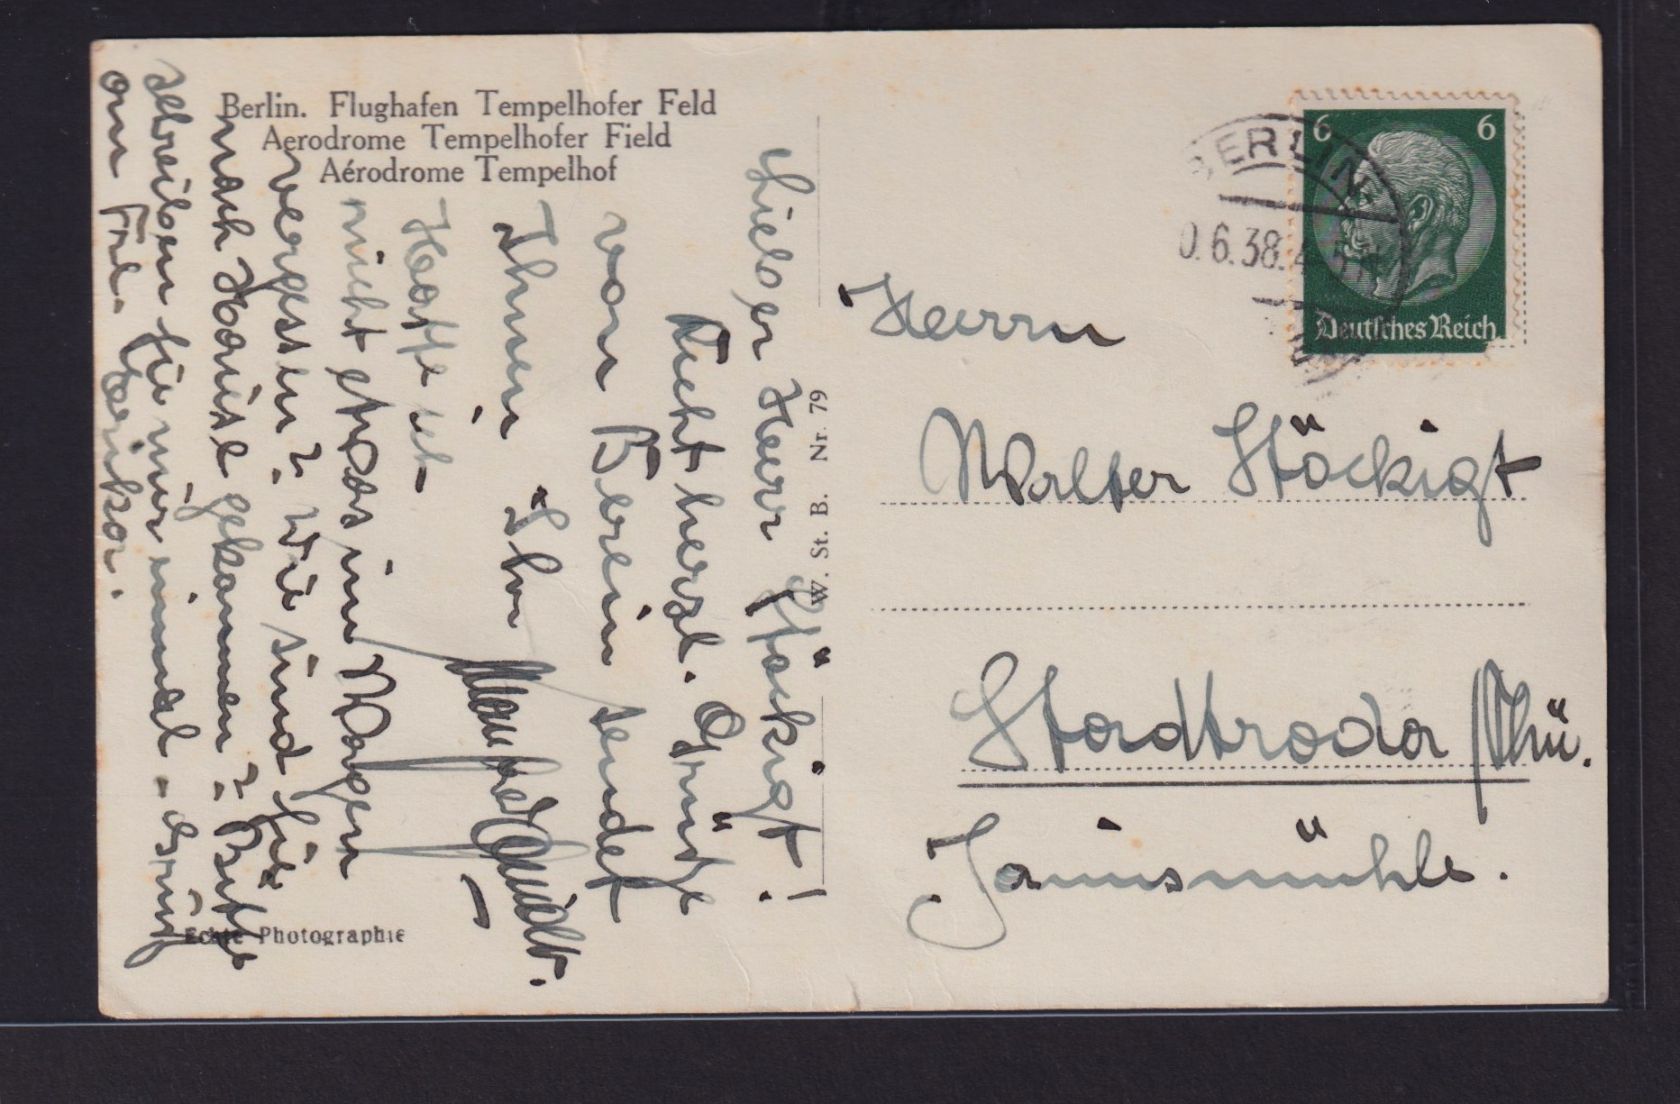 Berlin. Flughafen Tempelhofer Feld
Aerodrome Tempelhofer Field
Aérodrome Tempelhof
Lieber Herr Stöckigt!
Recht herzl. Grüße
von Berlin sendet
Ihnen Ihr
Hatte ich
nicht etwas im Wagen
vergessen? Wie sind Sie
nach Hause gekommen? Bitte
schreiben Sie mir einmal. Gruß
an Frl. Marika.
Echte Photographie
W. St. B. Nr. 79
BERLIN
0.6.38.
6 6
Deutsches Reich
Herrn
Walter Stöckigt
Stadtroda / Thü.
Janismühle.